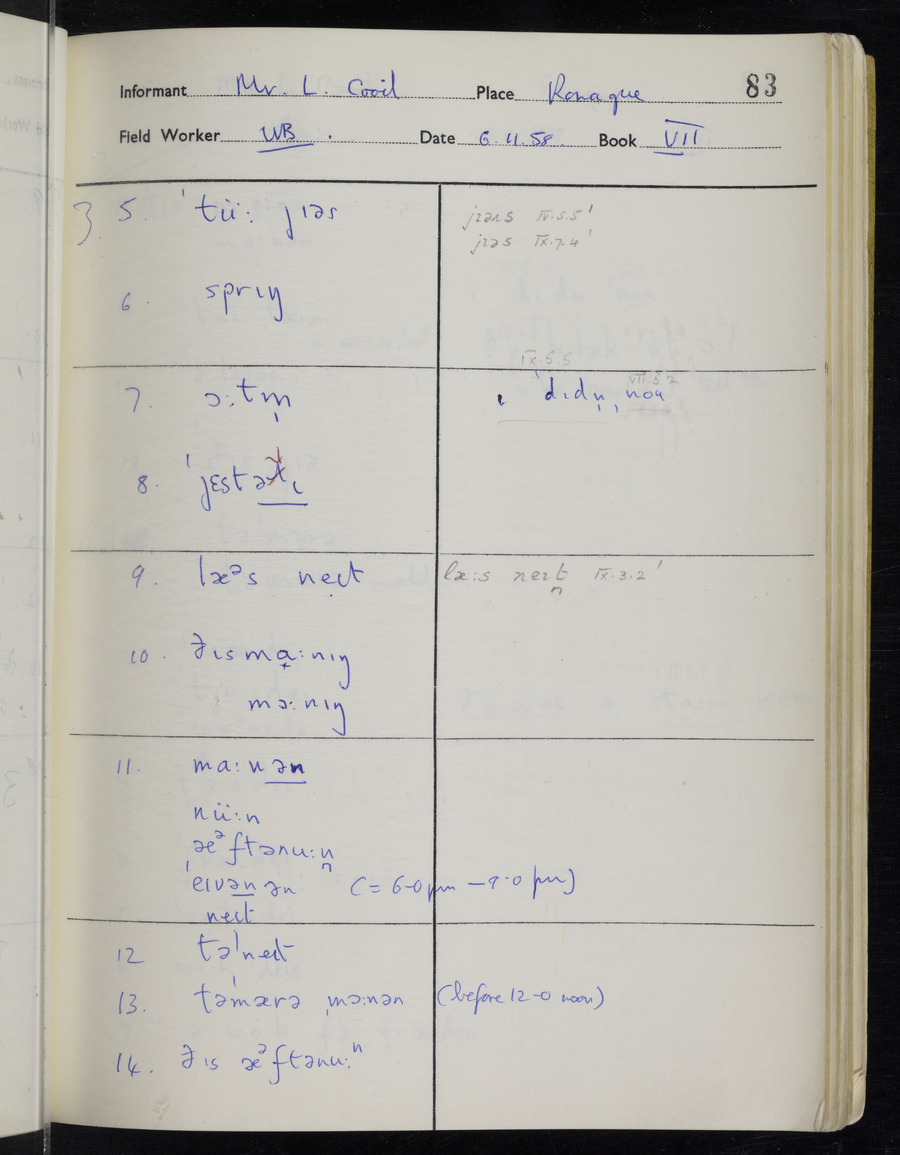 Informant Mr. L. Cooil Place Ronague 83
Field Worker WB. Date 6.11.58. Book VII
3 5. ˈtüː jɪəs jɪəɹs IV.5.5'
jɪəs IX.7.4'
6. sprɪŋ
IX.5.5 VII.5.2
7. ɔːtm̩ ɪ dɪdn̩ noʊ
8. ˈjɛstətɪ
9. læᵊs neɪt læːs neɪt IX.3.2'
10. ðɪs mɑ̟ːnɪŋ
mɔːnɪŋ
11. maːnən
nüːn
æᵊftənuːn
ˈeɪvənən (= 6-0 pm – 9-0 pm)
neɪt
12 təˈneɪt
13. təˈmærə ˌmɔːnən (before 12-0 noon)
14. ðɪs æᵊftənuːⁿ